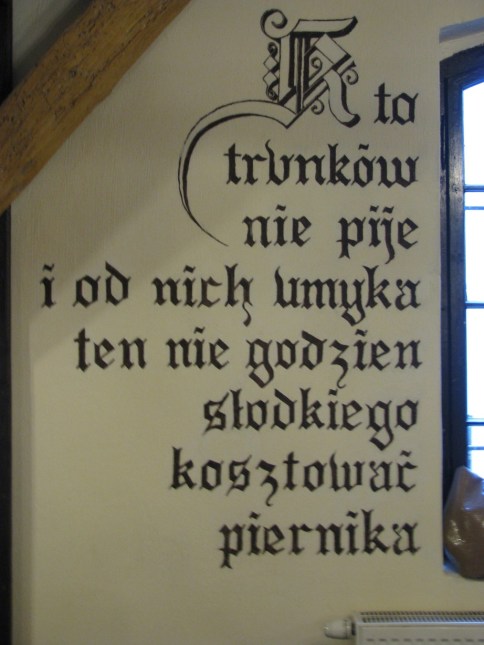 Kto
trunków
nie pije
i od nich umyka
ten nie godzien
słodkiego
kosztować
piernika